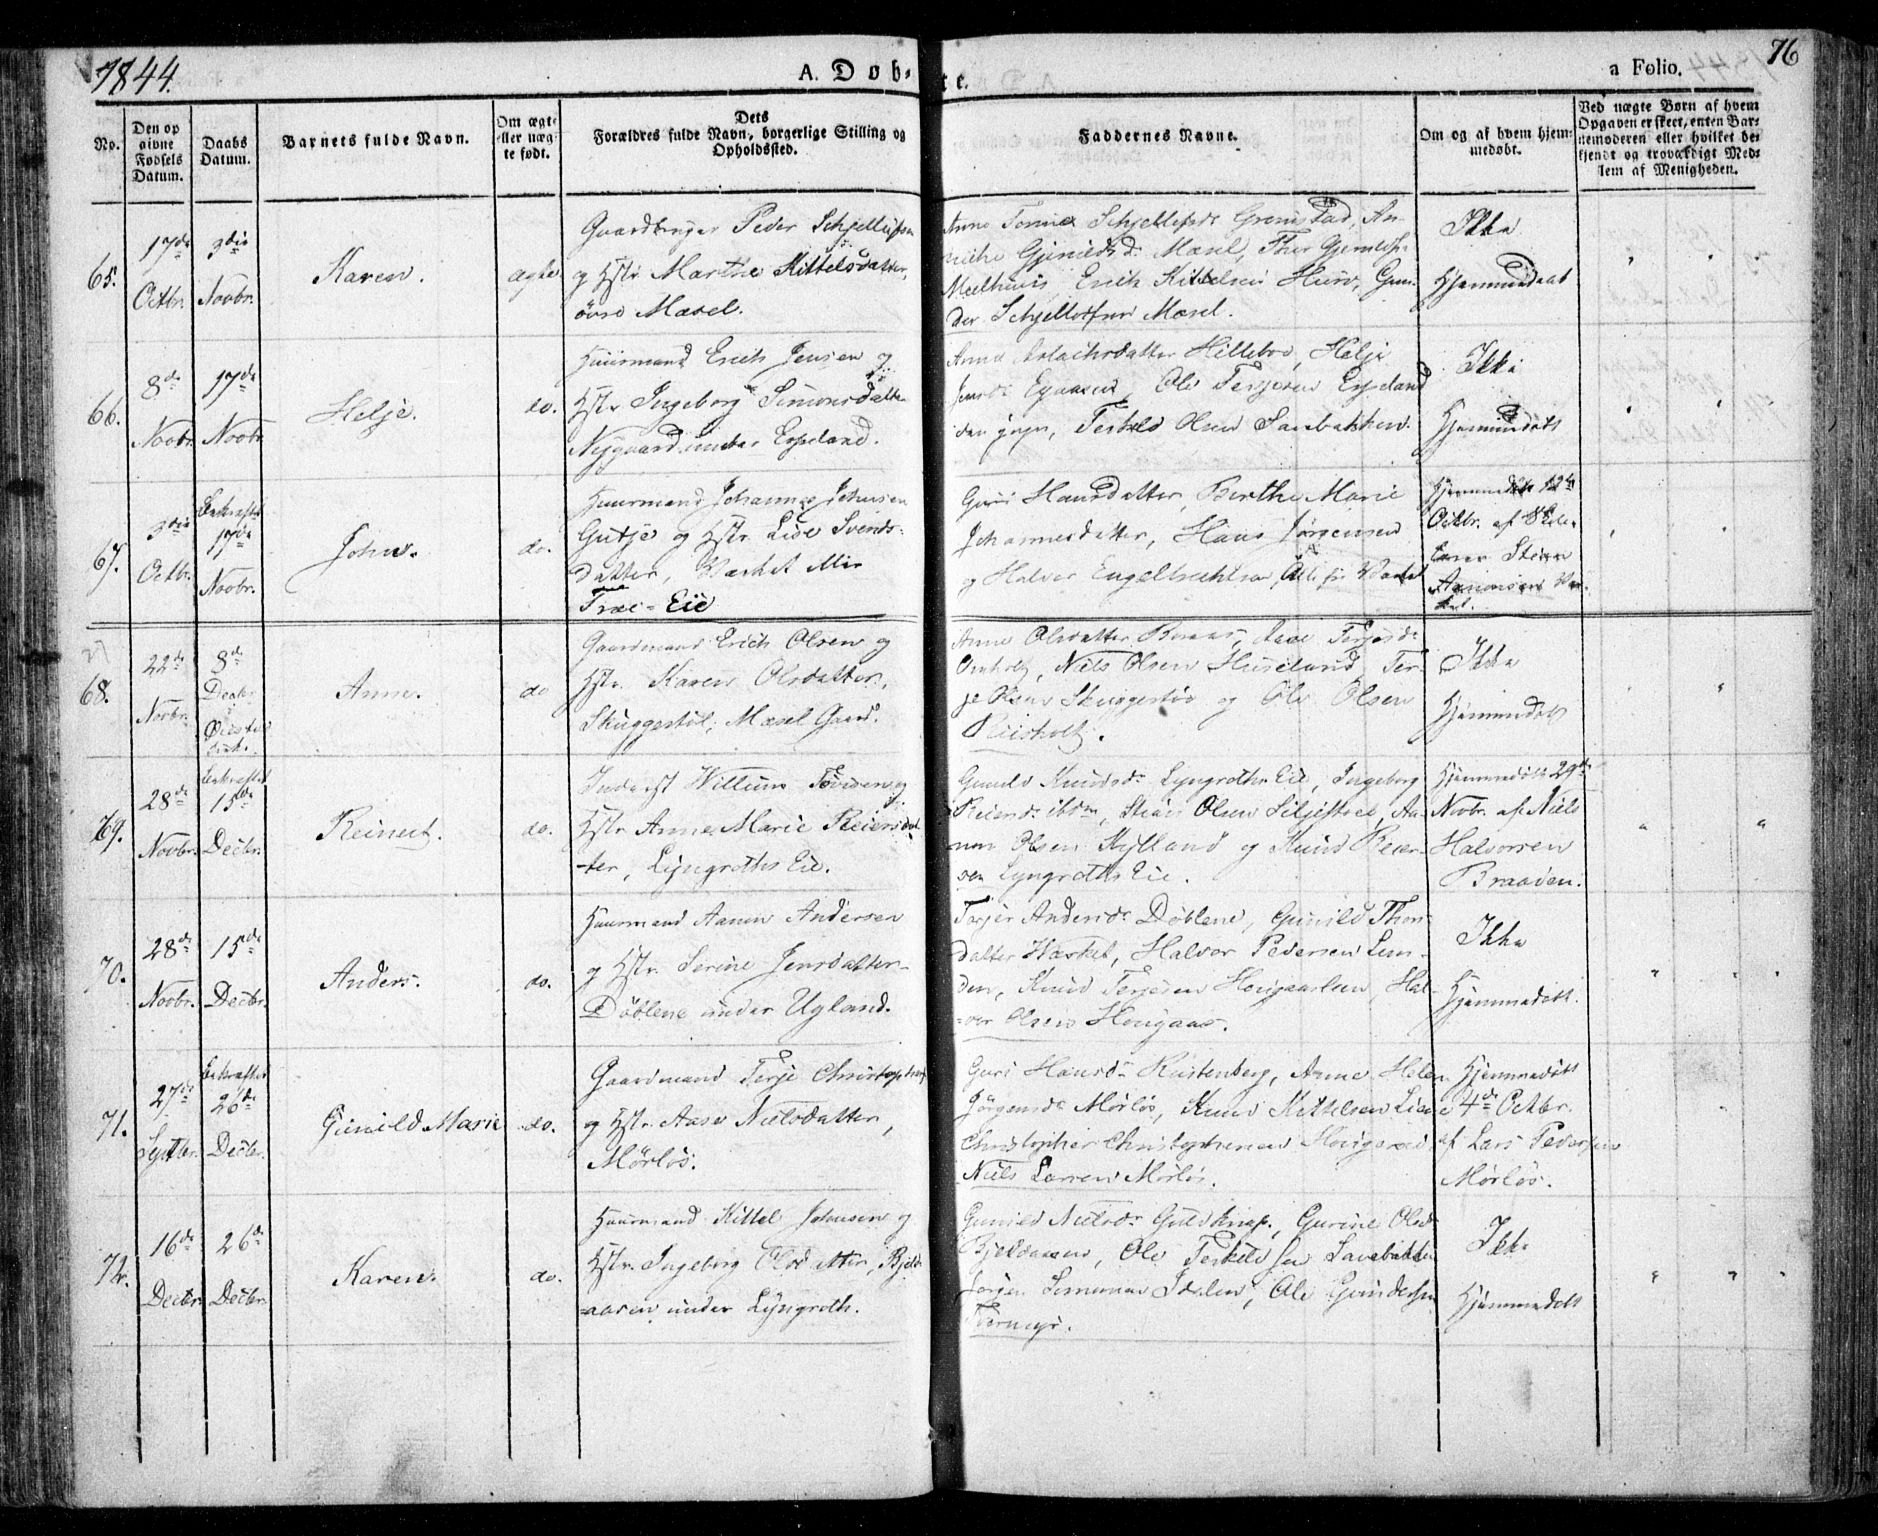 1844.
A. Døb-
te.
a Folio.
76
No.
Den op
givne
Fødsels
Datum.
Daabs
Datum.
Barnets fulde Navn.
Om ægte
eller uæg-
te født.
Dets
Forældres fulde Navn, borgerlige Stilling og
Opholdssted.
Faddernes Navne.
Om og af hvem hjem-
medøbt.
Ved uægte Børn af hvem
Opgaven er skeet, enten Bar-
nemoderen eller hvilket be-
kjendt og troværdigt Med-
lem af Menigheden.
65.
17de
Octbr.
3die
Novbr.
Karen.
ægte
Gaardbruger Peder
og Hstr Marthe Kittelsdatter,
øvre Mæsel.
Anne
Mæsel, Thor
Erich Kittelsen
Mæsel.
Ikke
Hjemmedøbt
66.
8de
Novbr.
17de
Novbr.
Helje.
do.
Huusmand Erich Jensen og
Hstr Ingeborg Simonsdatter
Nygaard under Espeland.
Anne Aslachsdatter Hillebo, Helje
Ole Terjesen Espeland
den yngre, Terkeld Olsen Saubakken.
Ikke
Hjemmedøbt
67.
3die
Octbr.
bekræftet
17de
Novbr.
John.
do.
Huusmand Johannes Johnsen
Gutje og Hstr. Lise Svends-
datter, Værket Mit
Træ-Eie
Guri Hansdatter, Berthe Marie
Johannesdatter, Hans Jørgensen
og Halvor Engelbrehtsen Alle fra Værket
Hjemmedøbt 12te
Octbr. af Skole-
lærer Steen
Aanonsen Vær-
ket.
68.
22de
Novbr.
8de
Decbr.
Anne.
do
Gaardmand Erich Olsen og
Hstr. Karen Olsdatter,
Skuggestøl, Mæsel Gaard.
Anne Olsdatter Aase Terjesdr
Niels Olsen Huseland, Ter-
je Olsen Skuggestøl og Ole Olsen
Riisholt.
Ikke
Hjemmedøbt
69.
28de
Novbr.
bekræftet
15de
Decbr.
Reinert.
do.
Inderst Willum
Hstr. Anne Marie Reiersdat-
ter, Lyngroths Eie.
Gunild Knudsdr Lyngroths Eie, Ingeborg
Reiersdr ibdm, Olsen Aa-
non Olsen Kylland og Knud Reier-
sen Lyngroths Eie.
Hjemmedøbt 29de
Novbr. af Niels
Halvorsen
Braaden.
70.
28de
Novbr.
15de
Decbr.
Anders.
do.
Huusmand Aanon Andersen
og Hstr. Serine Jensdatter
Døblene under Ugland.
Andersdr Døblene, Gunild Thors-
datter Værket, Halvor Pedersen Lun-
den, Knud Terjesen Hal-
vor Olsen Hougaas.
Ikke
Hjemmedøbt.
71.
27de
Septbr.
bekræftet
26de
Decbr.
Gunild Marie
do.
Gaardmand Terje Christophersen
og Hstr. Aase Nielsdatter,
Mørløs.
Guri Hansdr Rustenberg, Anne Helene
Jørgensdr Mørløs, Knud Kittelsen Lien
Christopher Christophersen
Niels Larsen Mørløs.
Hjemmedøbt
4de Octbr.
af Lars Pedersen
Mørløs.
72.
16de
Decbr
26de
Decbr.
Karen.
do.
Huusmand Kittel Johnsen og
Hstr. Ingeborg Olsdatter, Bjeld-
aasen under Lyngroth.
Gunild Nielsdr Guldknap, Gurine Olsdr
Bjeldaasen, Ole Terkeldsen Saubakken
Jørgen Ole Gundersen
Ikke
Hjemmedøbt